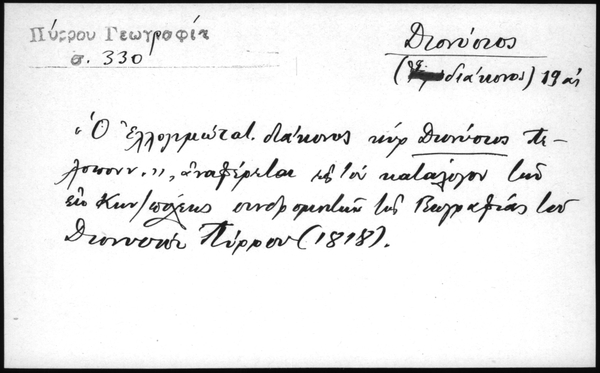 Πύρρου Γεωγραφία
σ. 330
Διονύσιος
(διάκονος) 19 αἰ
"Ὁ Ἐλλογιμώτατ. διάκονος κύρ Διονύσιος Πε-
λοπονν.", ἀναφέρεται εἰς τόν κατάλογον τῶν
ἐν Κων/πόλει συνδρομητῶν τῆς Γεωγραφίας τοῦ
Διονυσίου Πύρρου (1818).